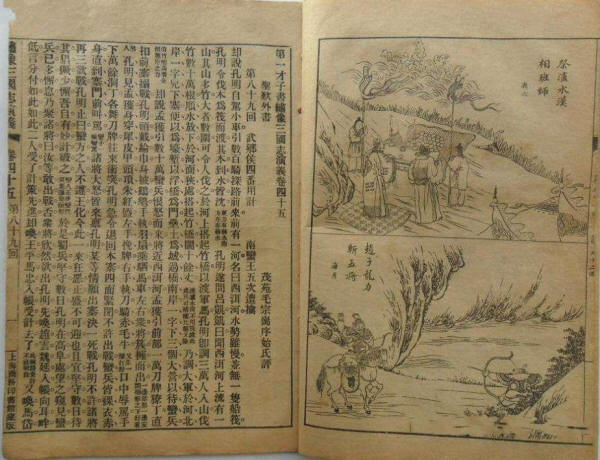 祭瀘水漢
相班師
趙子龍力
斬五將
第一才子書繡像三國志演義卷四十五
聖歎外書 茂苑毛宗崗序始氏評
第八十九回 武鄉侯四番用計 南蠻王五次遭擒
却說孔明自駕小車引數百騎前來探路前有一河名曰西洱河水勢雖慢並無一隻船筏
孔明令伐木爲筏而渡其木到水皆沈 孔明遂問呂凱凱曰聞西洱河上流有一
山其山多竹大者數圍可令人伐之於河上搭起竹橋以渡軍馬孔明卽調三萬人入山伐
竹數十萬根順水放下於河面狹處搭起竹橋闊十餘丈 乃調大軍於河北
岸一字兒下寨便以河爲壕塹以浮橋爲門壘土爲城過橋南岸一字下三個大營以待蠻兵
却說孟獲引數十萬蠻兵恨怒而來將近西洱河孟獲引前部一萬刀牌獠丁直
扣前寨搦戰孔明頭戴綸巾身披鶴氅手執羽扇乘駟馬車左右衆將簇擁而出
孔明見孟獲身穿犀皮甲頭頂朱紅盔左手挽牌右手執刀騎赤毛牛 口中辱罵手
下萬餘洞丁各舞刀牌往來衝突孔明急令退回本寨四面緊閉不許出戰蠻兵皆裸衣赤
身直到寨門前叫罵 諸將大怒皆來禀孔明曰某等情願出寨決一死戰孔明不許諸將
再三欲戰孔明止曰蠻方之人不遵王化今此一來狂惡正盛不可迎也且宜堅守數日待
其猖獗少懈吾自有妙計破之 於是蜀兵堅守數日孔明在高阜處望之窺見蠻
兵已多懈怠乃聚諸將曰汝等敢出戰否衆將欣然欲出孔明先喚趙雲魏延入帳向耳畔
低言分付如此如此二人受了計策先進却喚王平馬忠入帳受計去了 又喚馬岱
繡像三國志演義 卷四十五 第八十九回 上海商務印書館藏版